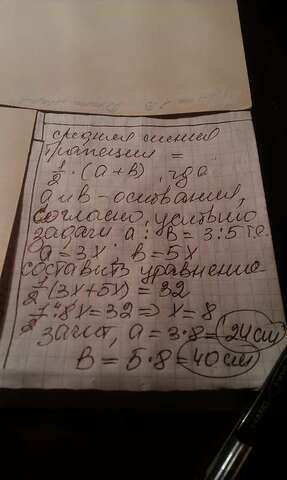 средняя линия
трапеции =
1/2 · (a + b), где
a и b - основания,
согласно, условию
задачи a : b = 3:5 т.е.
a = 3x; b = 5x
составить уравнение
1/2 (3x+5x) = 32
1/2 · 8x = 32 => x = 8
значит, a = 3·8 = 24 см
b = 5·8 = 40 см